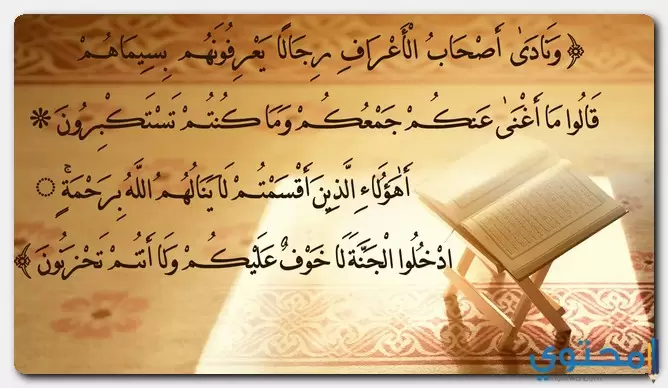 ﴿ وَنَادَىٰ أَصْحَابُ الْأَعْرَافِ رِجَالًا يَعْرِفُونَهُم بِسِيمَاهُمْ
قَالُوا مَا أَغْنَىٰ عَنكُمْ جَمْعُكُمْ وَمَا كُنتُمْ تَسْتَكْبِرُونَ *
أَهَٰؤُلَاءِ الَّذِينَ أَقْسَمْتُمْ لَا يَنَالُهُمُ اللَّهُ بِرَحْمَةٍ ۚ
ادْخُلُوا الْجَنَّةَ لَا خَوْفٌ عَلَيْكُمْ وَلَا أَنتُمْ تَحْزَنُونَ ﴾
محتوي